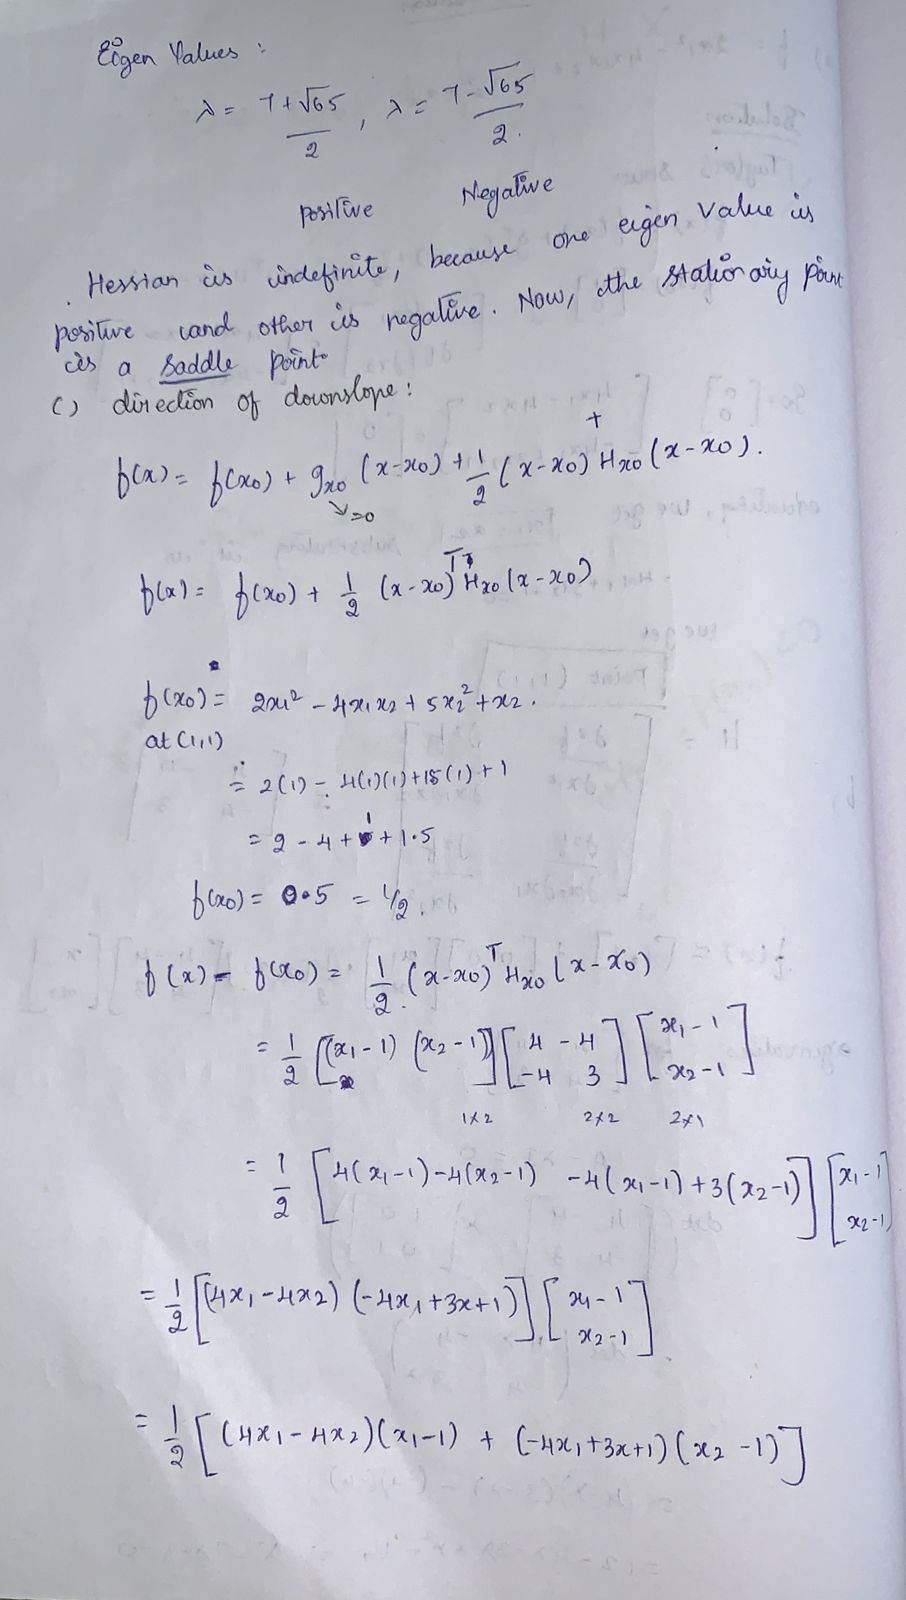 Eigen Values :
λ = 7+√65/2 , λ = 7-√65/2.
positive Negative
Hessian is indefinite, because one eigen value is
positive and other is negative. Now, the stationary point
is a saddle point
c) direction of downslope :
f(x) = f(x0) + gx0 (x-x0) + 1/2 (x-x0)+ Hx0 (x-x0).
↘=0
f(x) = f(x0) + 1/2 (x-x0)T Hx0 (x-x0)
f(x0) = 2x1² - 4x1x2 + 5x2² + x2.
at (1,1)
= 2(1) - 4(1)(1) + 15(1) + 1
= 2 - 4 + 1 + 1.5
f(x0) = 0.5 = 1/2.
f(x) - f(x0) = 1/2 (x-x0)T Hx0 (x-x0)
= 1/2 [(x1-1) (x2-1)] [4 -4 -4 3] [x1-1 x2-1]
1×2 2×2 2×1
= 1/2 [4(x1-1)-4(x2-1) -4(x1-1)+3(x2-1)] [x1-1 x2-1]
= 1/2 [(4x1-4x2) (-4x1+3x+1)] [x1-1 x2-1]
= 1/2 [(4x1-4x2)(x1-1) + (-4x1+3x+1)(x2-1)]